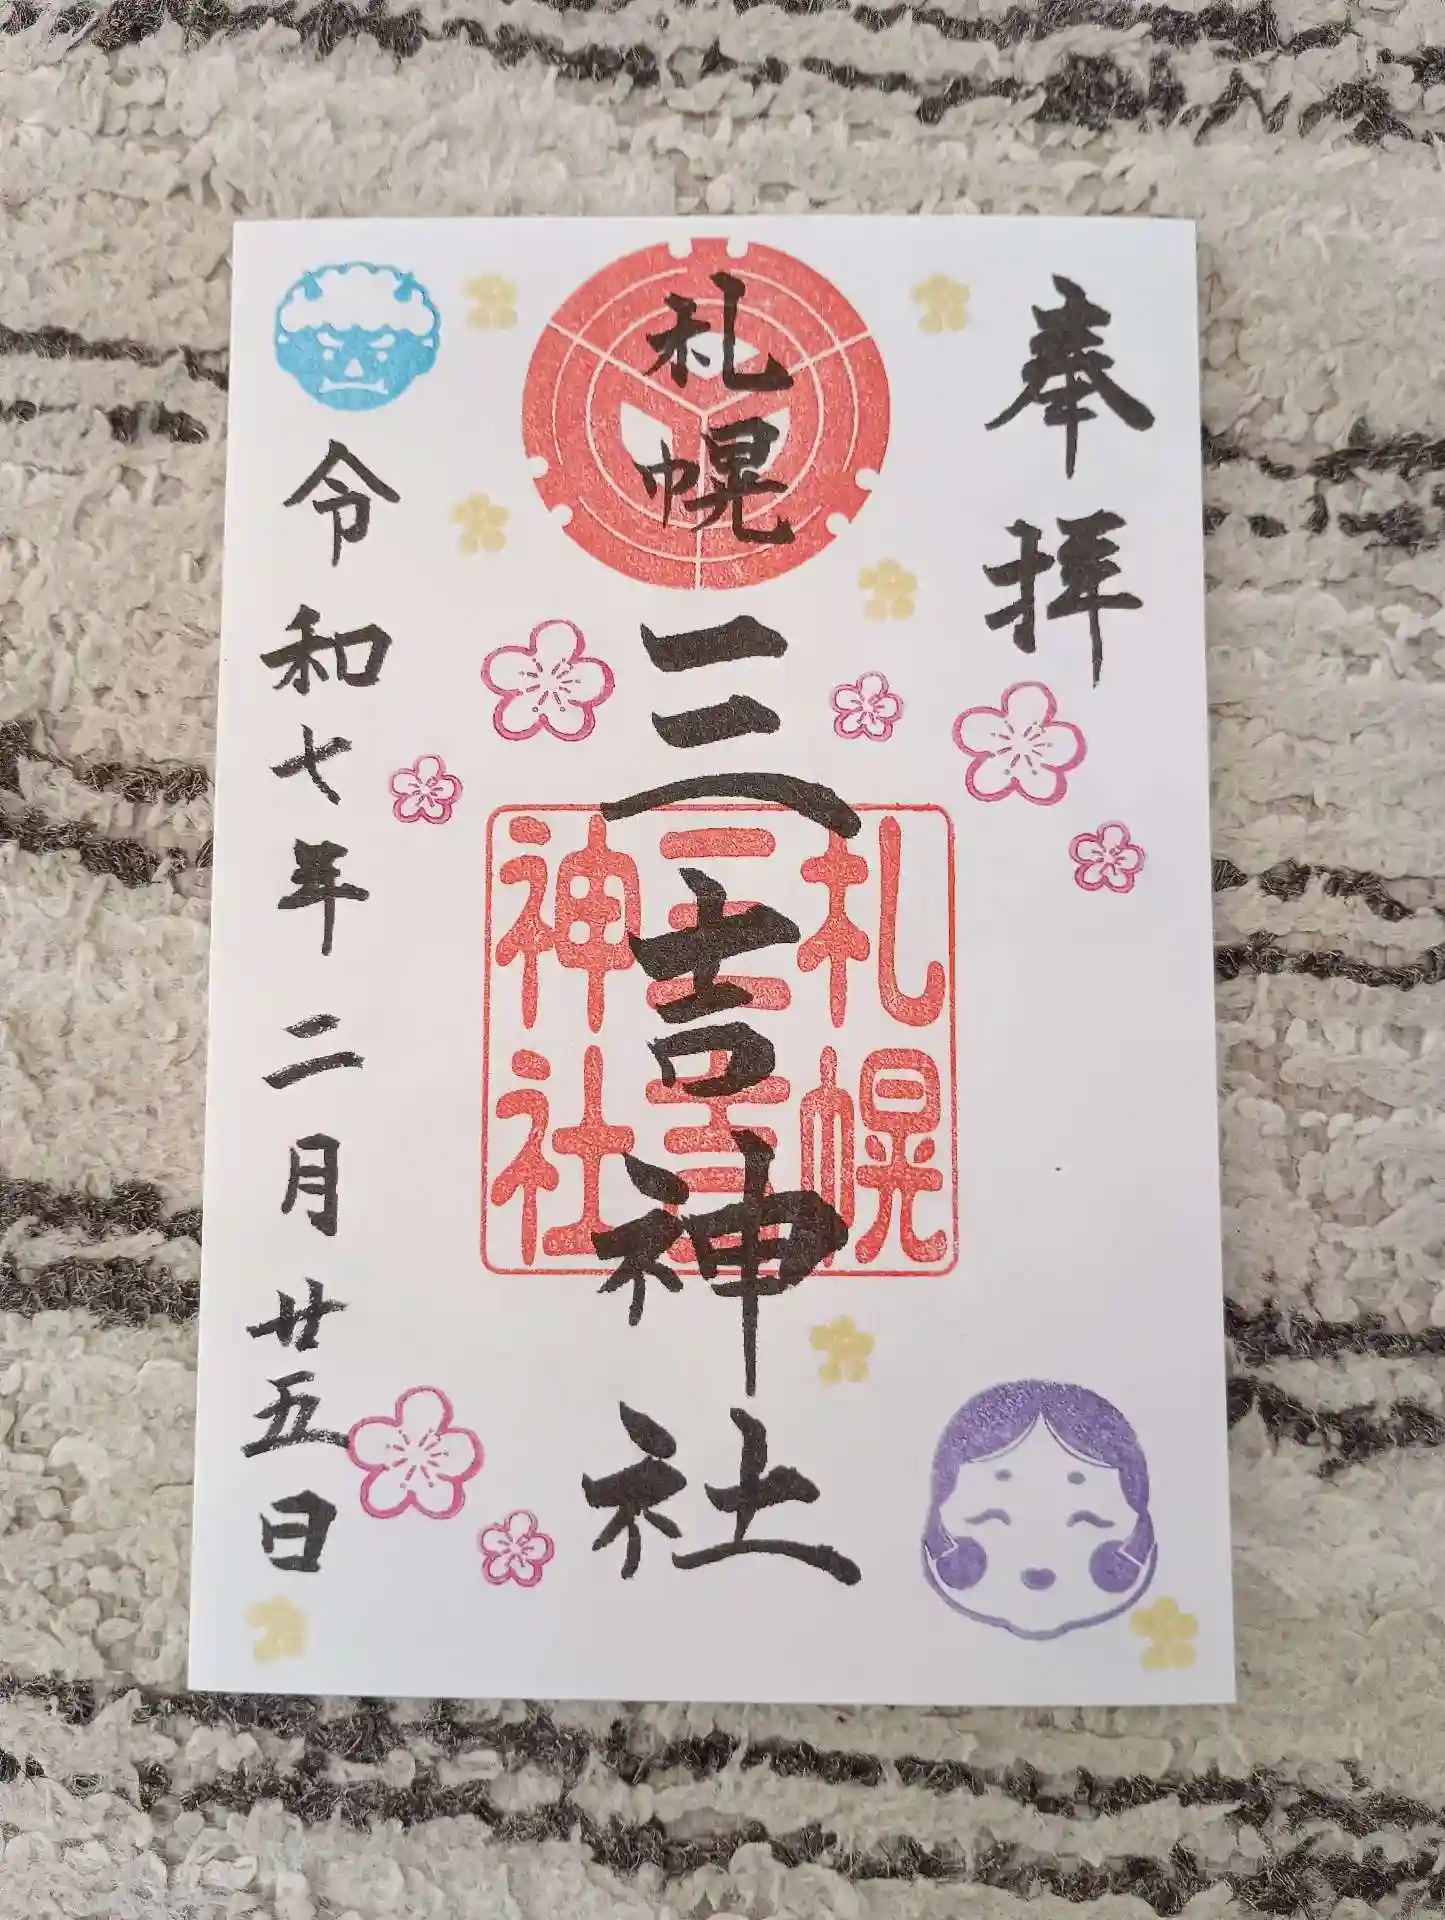 奉拝
札幌三吉神社
札幌
三吉
神社
令和七年二月廿五日